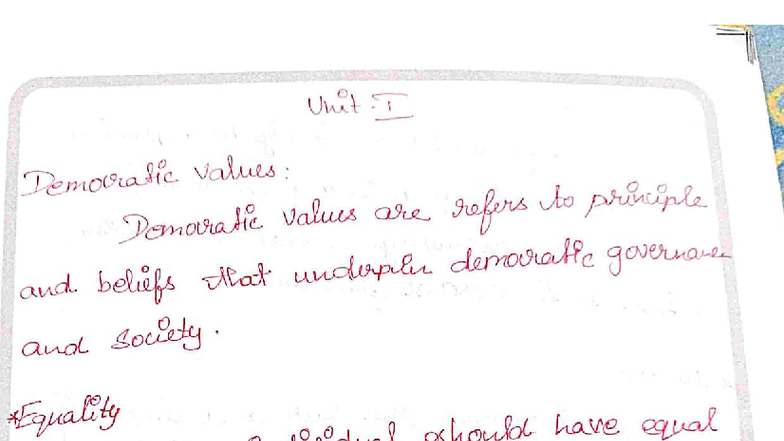 Unit : I
Democratic values:
Democratic values are refers to principle
and beliefs that underpin democratic governance
and society.
*Equality
should have equal